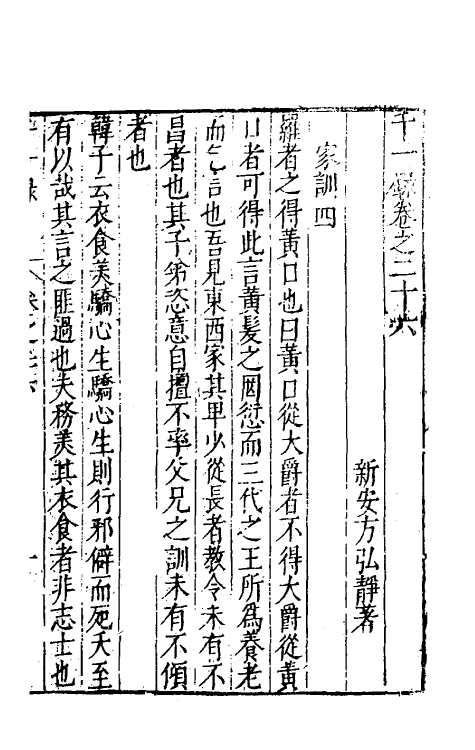 千一錄卷之二十六
新安方弘靜著
家訓四
羅者之得黃口也曰黃口從大爵者不得大爵從黃
口者可得此言黃髮之罔愆而三代之王所為養老
而乞言也吾見東西家其卑少從長者教令未有不
昌者也其子弟恣意自擅不率父兄之訓未有不傾
者也
韓子云衣食美驕心生驕心生則行邪僻而死夭至
有以哉其言之匪過也夫務美其衣食者非志士也
千一錄
卷之二十六
一